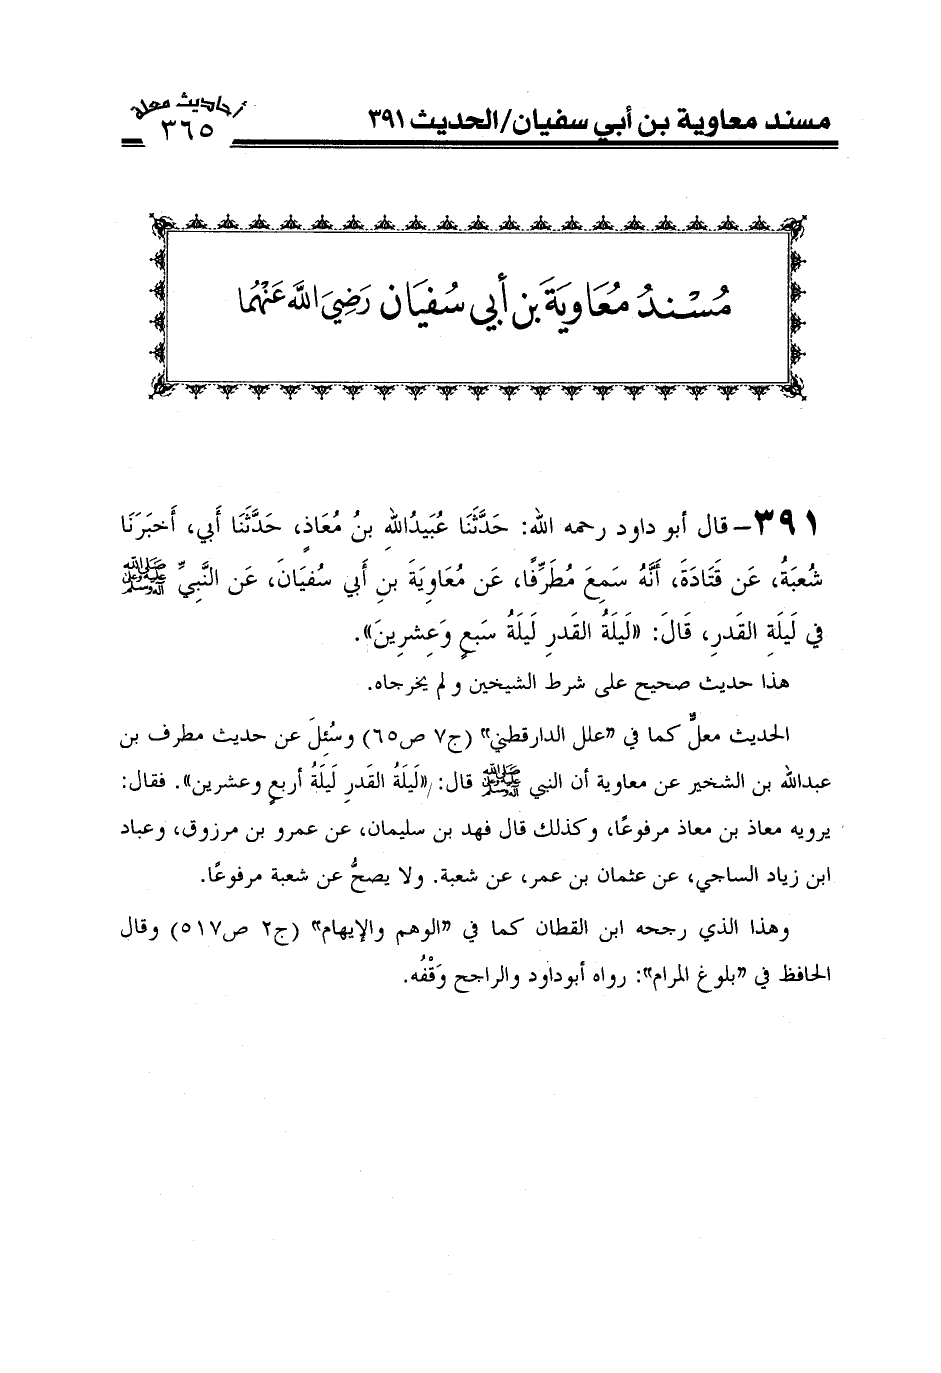 مسند معاوية بن أبي سفيان/الحديث ٣٩١
أحاديث معلة
٣٦٥
مُسْندُ مُعَاوِيَةَ بن أَبي سُفيَان رَضِيَ اللَّه عَنْهُمَا
٣٩١- قال أبو داود رحمه الله: حَدَّثَنَا عُبَيدُاللهِ بنُ مُعَاذٍ، حَدَّثَنَا أَبي، أَخبَرَنَا
شُعبَةُ، عَن قَتَادَةَ، أَنَّهُ سَمِعَ مُطَرِّفًا، عَن مُعَاوِيَةَ بنِ أَبي سُفيَانَ، عَن النَّبِيِّ ﷺ
في لَيلَةِ القَدرِ، قَالَ: «لَيلَةُ القَدرِ لَيلَةُ سَبعٍ وَعِشرِينَ».
هذا حديث صحيح على شرط الشيخين ولم يخرجاه.
الحديث معلٌّ كما في «علل الدارقطني» (ج٧ ص٦٥) وسُئِلَ عن حديث مطرف بن
عبدالله بن الشخير عن معاوية أن النبي ﷺ قال: «لَيلَةُ القَدرِ لَيلَةُ أربعٍ وعشرين». فقال:
يرويه معاذ بن معاذ مرفوعًا، وكذلك قال فهد بن سليمان، عن عمرو بن مرزوق، وعباد
ابن زياد الساجي، عن عثمان بن عمر، عن شعبة. ولا يصحُّ عن شعبة مرفوعًا.
وهذا الذي رجحه ابن القطان كما في «الوهم والإيهام» (ج٢ ص٥١٧) وقال
الحافظ في «بلوغ المرام»: رواه أبوداود والراجح وَقْفُه.